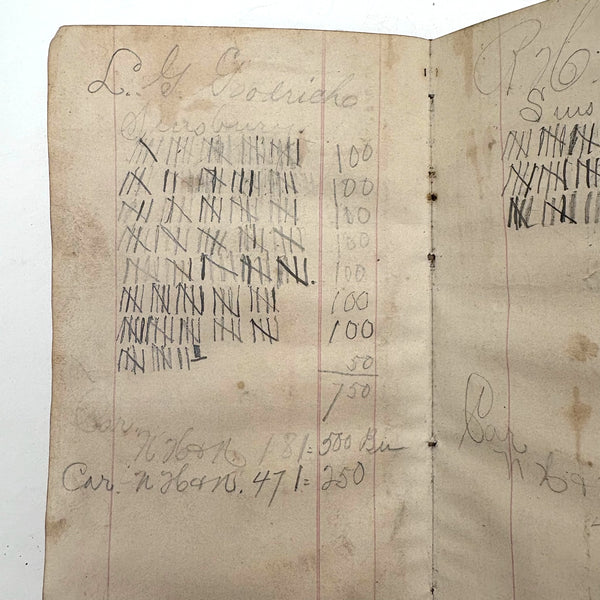 L. G. Goodrich
100
100
100
100
100
100
100
50
750
Car
N H & N. 181 = 500 Bu
Car. N H & N. 471 = 250
R H
Sims
Car
N H &